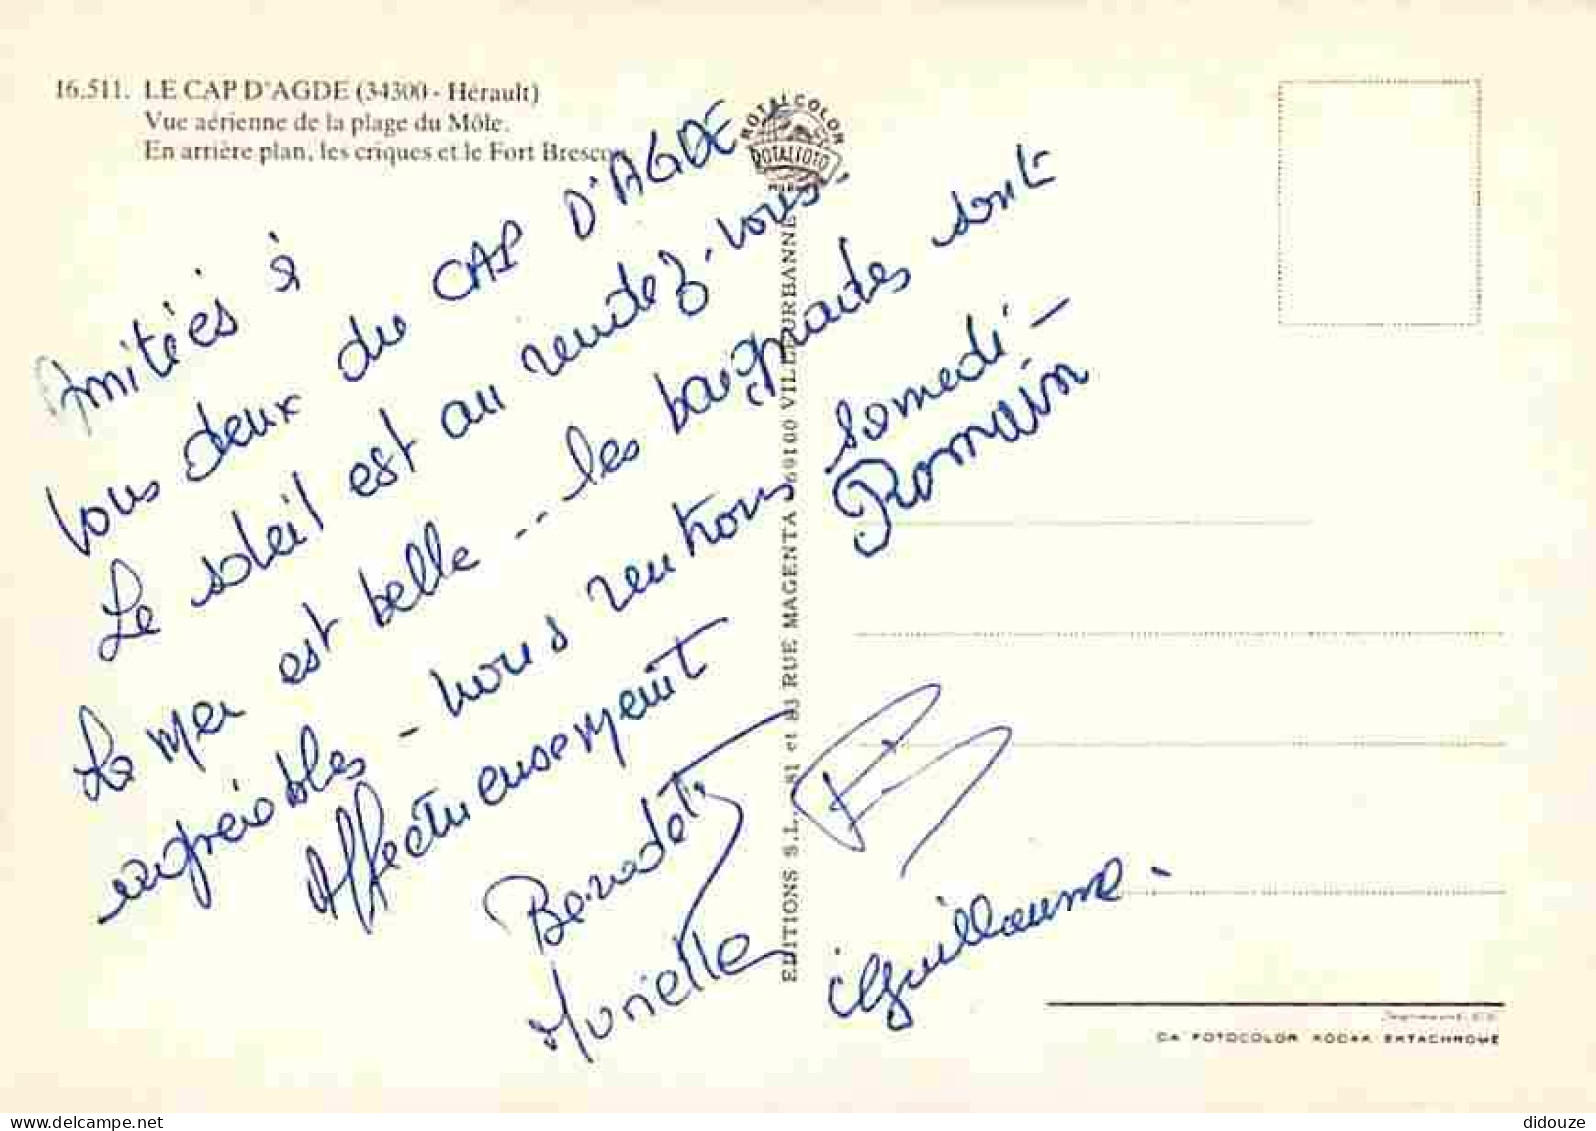 16.511. LE CAP D'AGDE (34300 - Hérault)
Vue aérienne de la plage du Môle.
En arrière plan, les criques et le Fort Brescou
ROTALCOLOR
ROTALFOTO
Amitiés à
vous deux du CAP D'AGDE
Le soleil est au rendez-vous,
La mer est belle -- les baignades sont
agréables - nous rentrons samedi -
Affectueusement
Romain
Benedett
Murielle
Guillaume.
EDITIONS S.L. 81 et 83 RUE MAGENTA 69100 VILLEURBANNE
CA FOTOCOLOR KODAK EKTACHROME
www.delcampe.net
didouze